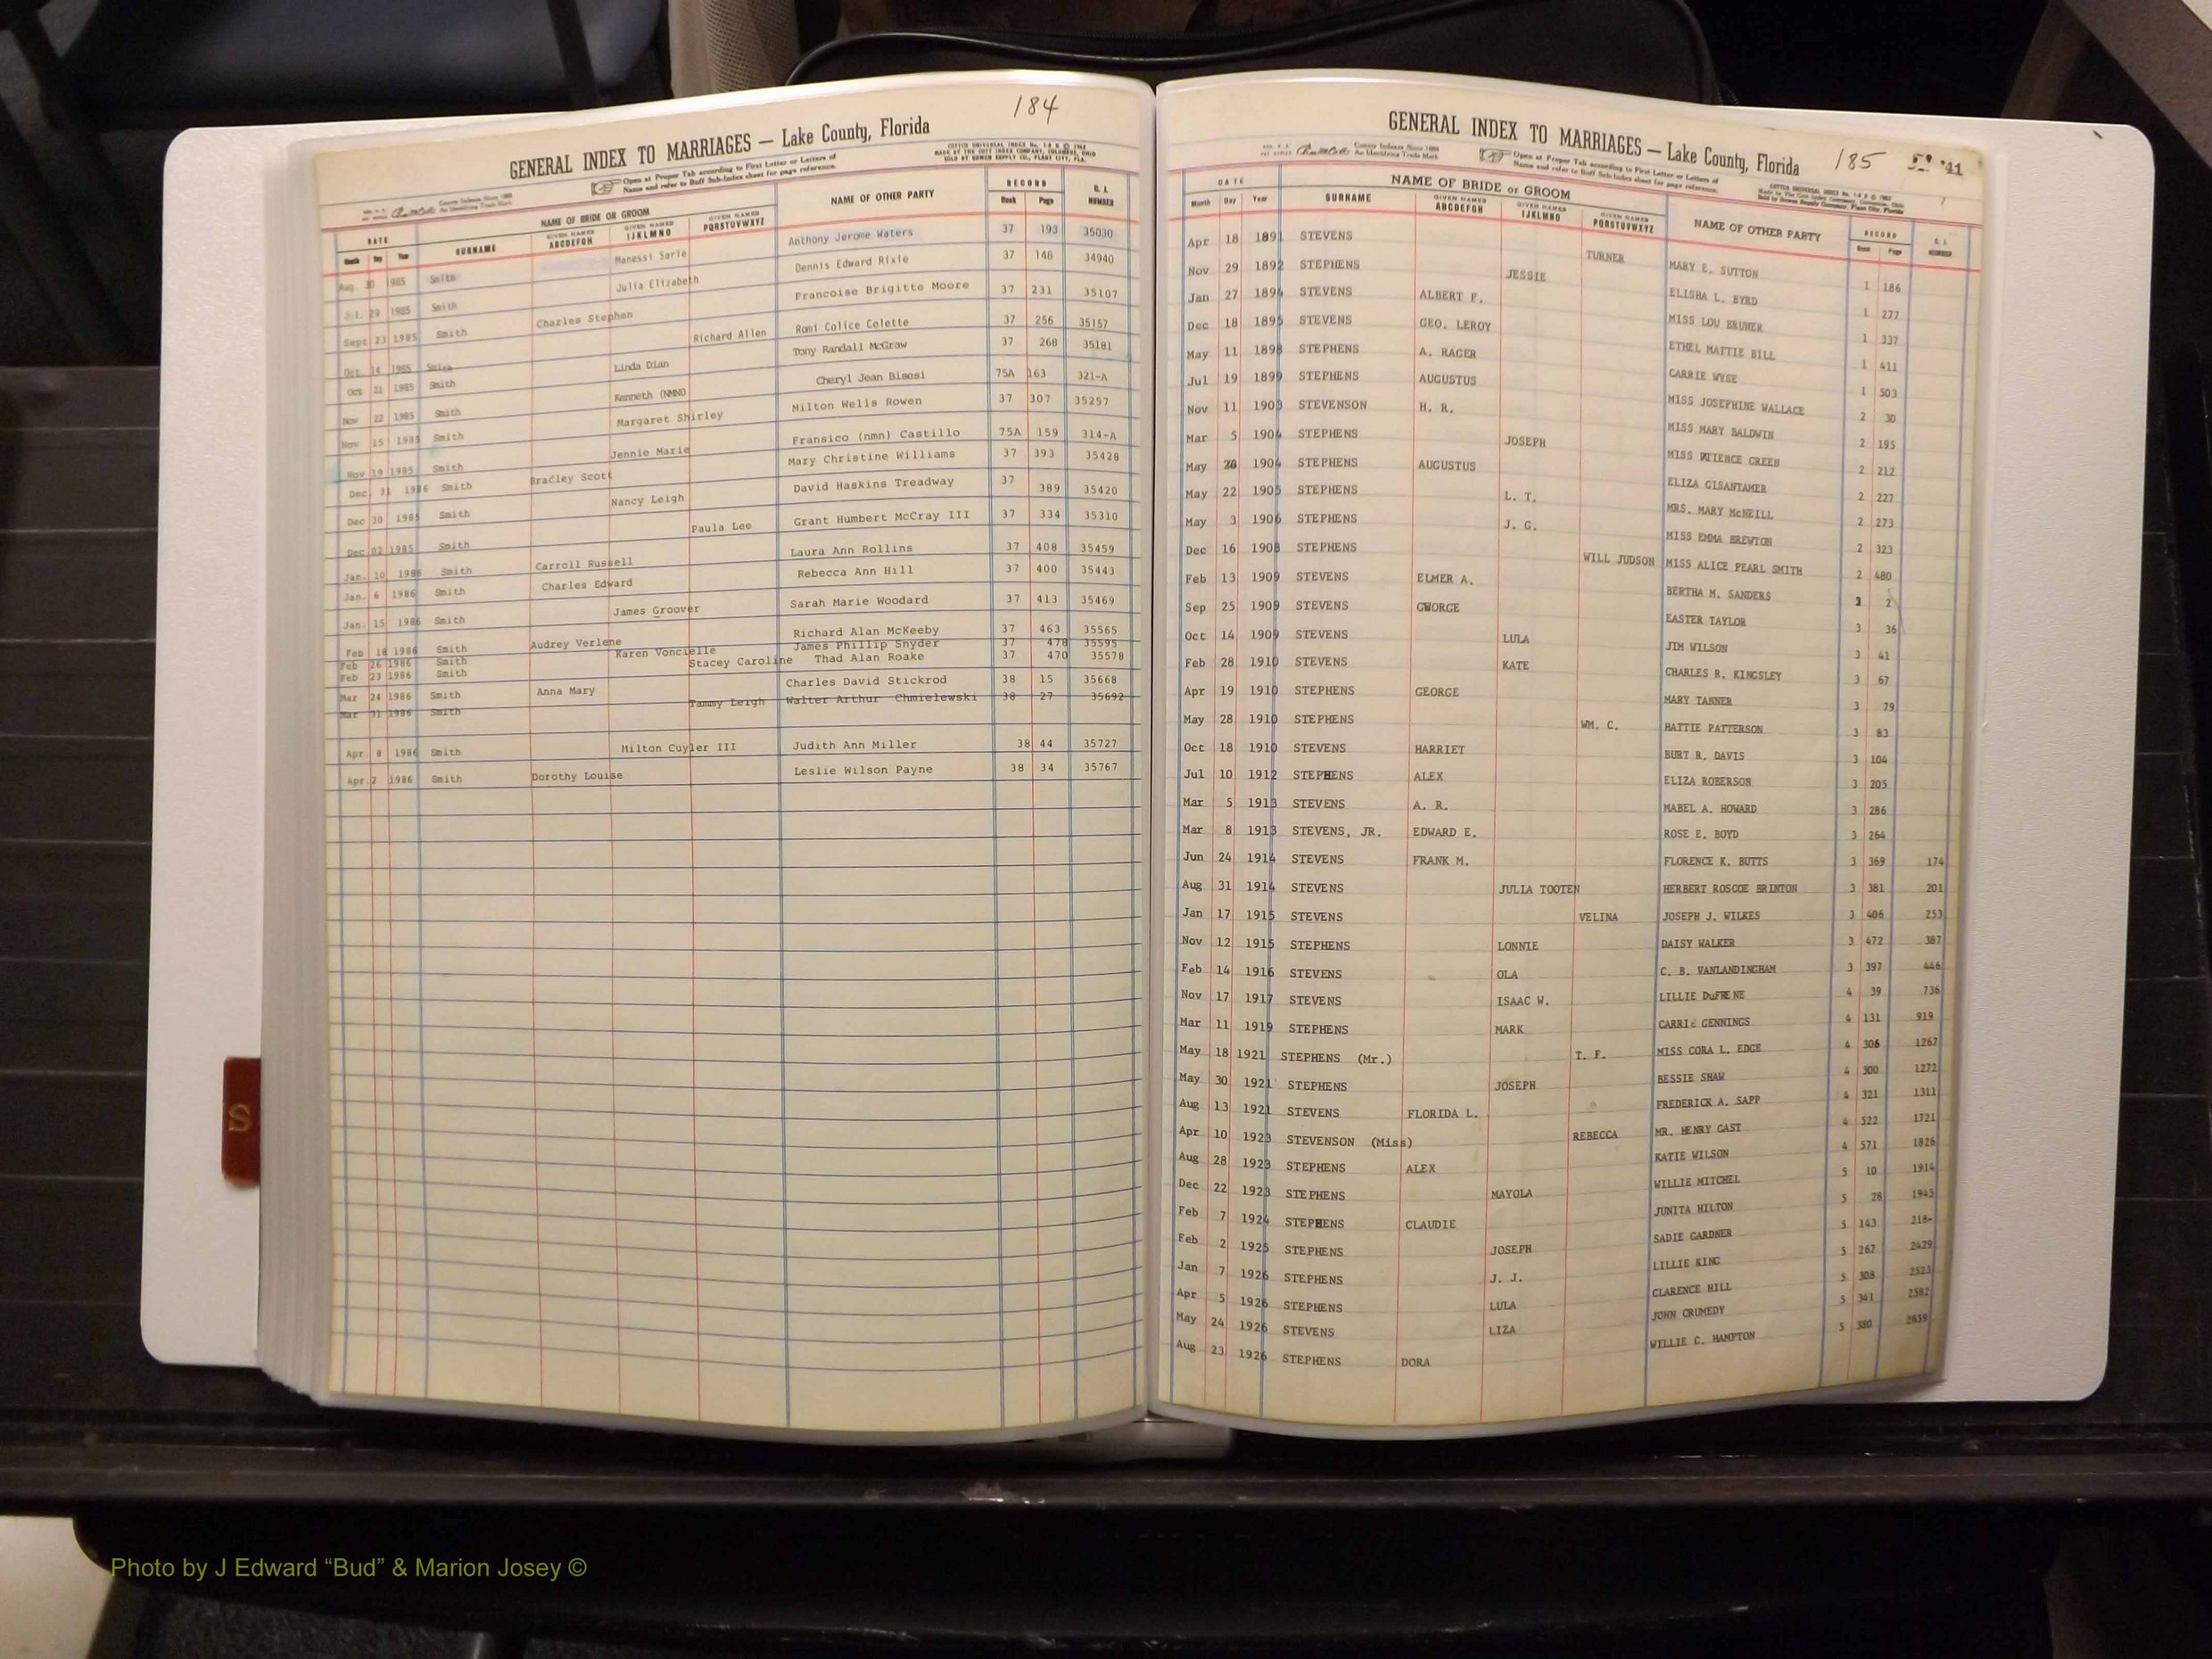 184
GENERAL INDEX TO MARRIAGES — Lake County, Florida
Open at Proper Tab according to First Letter or Letters of
Name and refer to Buff Sub-Index sheet for page reference.
DATE NAME OF BRIDE OR GROOM NAME OF OTHER PARTY RECORD
Month Day Year SURNAME GIVEN NAMES ABCDEFGH GIVEN NAMES IJKLMNO GIVEN NAMES PQRSTUVWXYZ Book Page NUMBER
Aug. 30 1985 Smith Manessi Sarie Anthony Jerome Waters 37 193 35030
Jul. 29 1985 Smith Julia Elizabeth Dennis Edward Rixie 37 148 34940
Sept 23 1985 Smith Charles Stephen Francoise Brigitte Moore 37 231 35107
Oct. 14 1985 Smith Richard Allen Romi Colice Colette 37 256 35157
Oct 21 1985 Smith Linda Dian Tony Randall McGraw 37 268 35181
Nov 22 1985 Smith Kenneth (NMNO Cheryl Jean Bisesi 75A 163 321-A
Nov 15 1985 Smith Margaret Shirley Milton Wells Rowen 37 307 35257
Nov 19 1985 Smith Jennie Marie Fransico (nmn) Castillo 75A 159 314-A
Dec. 31 1986 Smith Bradley Scott Mary Christine Williams 37 393 35428
Dec 30 1985 Smith Nancy Leigh David Haskins Treadway 37 389 35420
Dec 02 1985 Smith Paula Lee Grant Humbert McCray III 37 334 35310
Jan. 10 1986 Smith Carroll Russell Laura Ann Rollins 37 408 35459
Jan. 6 1986 Smith Charles Edward Rebecca Ann Hill 37 400 35443
Jan. 15 1986 Smith James Groover Sarah Marie Woodard 37 413 35469
Feb 18 1986 Smith Audrey Verlene Richard Alan McKeeby 37 463 35565
Feb 26 1986 Smith Karen Voncielle James Phillip Snyder 37 478 35595
Feb 23 1986 Smith Stacey Caroline Thad Alan Roake 37 470 35578
Mar 24 1986 Smith Anna Mary Charles David Stickrod 38 15 35668
Mar 31 1986 Smith Tammy Leigh Walter Arthur Chmielewski 38 27 35692
Apr. 8 1986 Smith Milton Cuyler III Judith Ann Miller 38 44 35727
Apr. 2 1986 Smith Dorothy Louise Leslie Wilson Payne 38 34 35767
S
GENERAL INDEX TO MARRIAGES — Lake County, Florida 185 '41
Open at Proper Tab according to First Letter or Letters of
Name and refer to Buff Sub-Index sheet for page reference.
DATE NAME OF BRIDE or GROOM NAME OF OTHER PARTY RECORD
Month Day Year SURNAME GIVEN NAMES ABCDEFGH GIVEN NAMES IJKLMNO GIVEN NAMES PQRSTUVWXYZ Book Page NUMBER
Apr 18 1891 STEVENS TURNER MARY E. SUTTON 1 186
Nov 29 1892 STEPHENS JESSIE ELISHA L. BYRD 1 277
Jan 27 1894 STEVENS ALBERT F. MISS LOU BRUNER 1 337
Dec 18 1895 STEVENS GEO. LEROY ETHEL MATTIE BILL 1 411
May 11 1898 STEPHENS A. RAGER CARRIE WYSE 1 503
Jul 19 1899 STEPHENS AUGUSTUS MISS JOSEPHINE WALLACE 2 30
Nov 11 1903 STEVENSON H. R. MISS MARY BALDWIN 2 195
Mar 5 1904 STEPHENS JOSEPH MISS PATIENCE GREEN 2 212
May 1904 STEPHENS AUGUSTUS ELIZA GISANTAMER 2 227
May 22 1905 STEPHENS L. T. MRS. MARY McNEILL 2 273
May 3 1906 STEPHENS J. G. MISS EMMA BREWTON 2 323
Dec 16 1908 STEPHENS WILL JUDSON MISS ALICE PEARL SMITH 2 480
Feb 13 1909 STEVENS ELMER A. BERTHA M. SANDERS 3 2
Sep 25 1909 STEVENS GEORGE EASTER TAYLOR 3 36
Oct 14 1909 STEVENS LULA JIM WILSON 3 41
Feb 28 1910 STEVENS KATE CHARLES R. KINGSLEY 3 67
Apr 19 1910 STEPHENS GEORGE MARY TANNER 3 79
May 28 1910 STEPHENS WM. C. HATTIE PATTERSON 3 83
Oct 18 1910 STEVENS HARRIET BURT R. DAVIS 3 104
Jul 10 1912 STEPHENS ALEX ELIZA ROBERSON 3 205
Mar 5 1913 STEVENS A. R. MABEL A. HOWARD 3 286
Mar 8 1913 STEVENS, JR. EDWARD E. ROSE E. BOYD 3 264
Jun 24 1914 STEVENS FRANK M. FLORENCE K. BUTTS 3 369 174
Aug 31 1914 STEVENS JULIA TOOTEN HERBERT ROSCOE BRINTON 3 381 201
Jan 17 1915 STEVENS VELINA JOSEPH J. WILKES 3 406 253
Nov 12 1915 STEPHENS LONNIE DAISY WALKER 3 472 387
Feb 14 1916 STEVENS OLA C. B. VANLANDINGHAM 3 397 446
Nov 17 1917 STEVENS ISAAC W. LILLIE DuFRENE 4 39 736
Mar 11 1919 STEPHENS MARK CARRIE GENNINGS 4 131 919
May 18 1921 STEPHENS (Mr.) T. F. MISS CORA L. EDGE 4 306 1267
May 30 1921 STEPHENS JOSEPH BESSIE SHAW 4 300 1272
Aug 13 1921 STEVENS FLORIDA L. FREDERICK A. SAPP 4 321 1311
Apr 10 1923 STEVENSON (Miss) REBECCA MR. HENRY GAST 4 522 1721
Aug 28 1923 STEPHENS ALEX KATIE WILSON 4 571 1826
Dec 22 1923 STEPHENS MAYOLA WILLIE MITCHEL 5 10 1914
Feb 7 1924 STEPHENS CLAUDIE JUNITA HILTON 5 28 1945
Feb 2 1925 STEPHENS JOSEPH SADIE GARDNER 5 143 218-
Jan 7 1926 STEPHENS J. J. LILLIE KING 5 267 2429
Apr 5 1926 STEPHENS LULA CLARENCE HILL 5 308 2523
May 24 1926 STEVENS LIZA JOHN CRUMEDY 5 341 2582
Aug 23 1926 STEPHENS DORA WILLIE C. HAMPTON 5 380 2659
Photo by J Edward “Bud” & Marion Josey ©